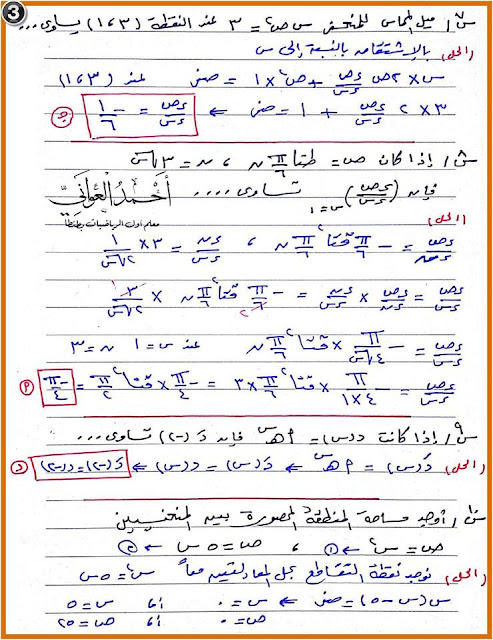 3
س٧/ ميل المماس للمنحنى س ص٢ = ٣ عند النقطة (٣، ١) يساوى ....
(الحل) بالإشتقاق بالنسبة إلى س
س × ٢ص ءص/ءس + ص٢ × ١ = صفر عند (٣، ١)
٣ × ٢ ءص/ءس + ١ = صفر ← ءص/ءس = -١/٦ (ج)
س٨/ إذا كان ص = ظتا π/٦ ن ، ن = ٣√س
فإن (ءص/ءس) س=١ تساوى ....
أحمد العوانى
معلم أول الرياضيات بطنطا
(الحل)
ءص/ءن = -π/٦ قتا٢ π/٦ ن ، ءن/ءس = ٣ × ١/٢√س
ءص/ءس = ءص/ءن × ءن/ءس = -π/٦ قتا٢ π/٦ ن × ٣/٢√س
ءص/ءس = -π/٤√س × قتا٢ π/٦ ن عند س = ١ ن = ٣
ءص/ءس = -π/٤×١ × قتا٢ π/٦ × ٣ = -π/٤ × قتا٢ π/٢ = -π/٤ (م)
س٩/ إذا كانت د(س) = م هـ^س فإن دَ(-٢) تساوى ...
(الحل) دَ(س) = م هـ^س ← دَ(س) = د(س) ← دَ(-٢) = د(-٢) (د)
س١٠/ أوجد مساحة المنطقة المحصورة بين المنحنيين
ص = س٢ ← ① ، ص = ٥ س ← ②
(الحل) نوجد نقطة التقاطع بحل المعادلتين معاً س٢ = ٥ س
س (س - ٥) = صفر ← س = ٠ أ، س = ٥
ص = ٠ أ، ص = ٢٥